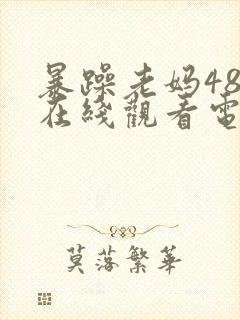 暴躁老妈48
在綫觀看電
莫落繁華